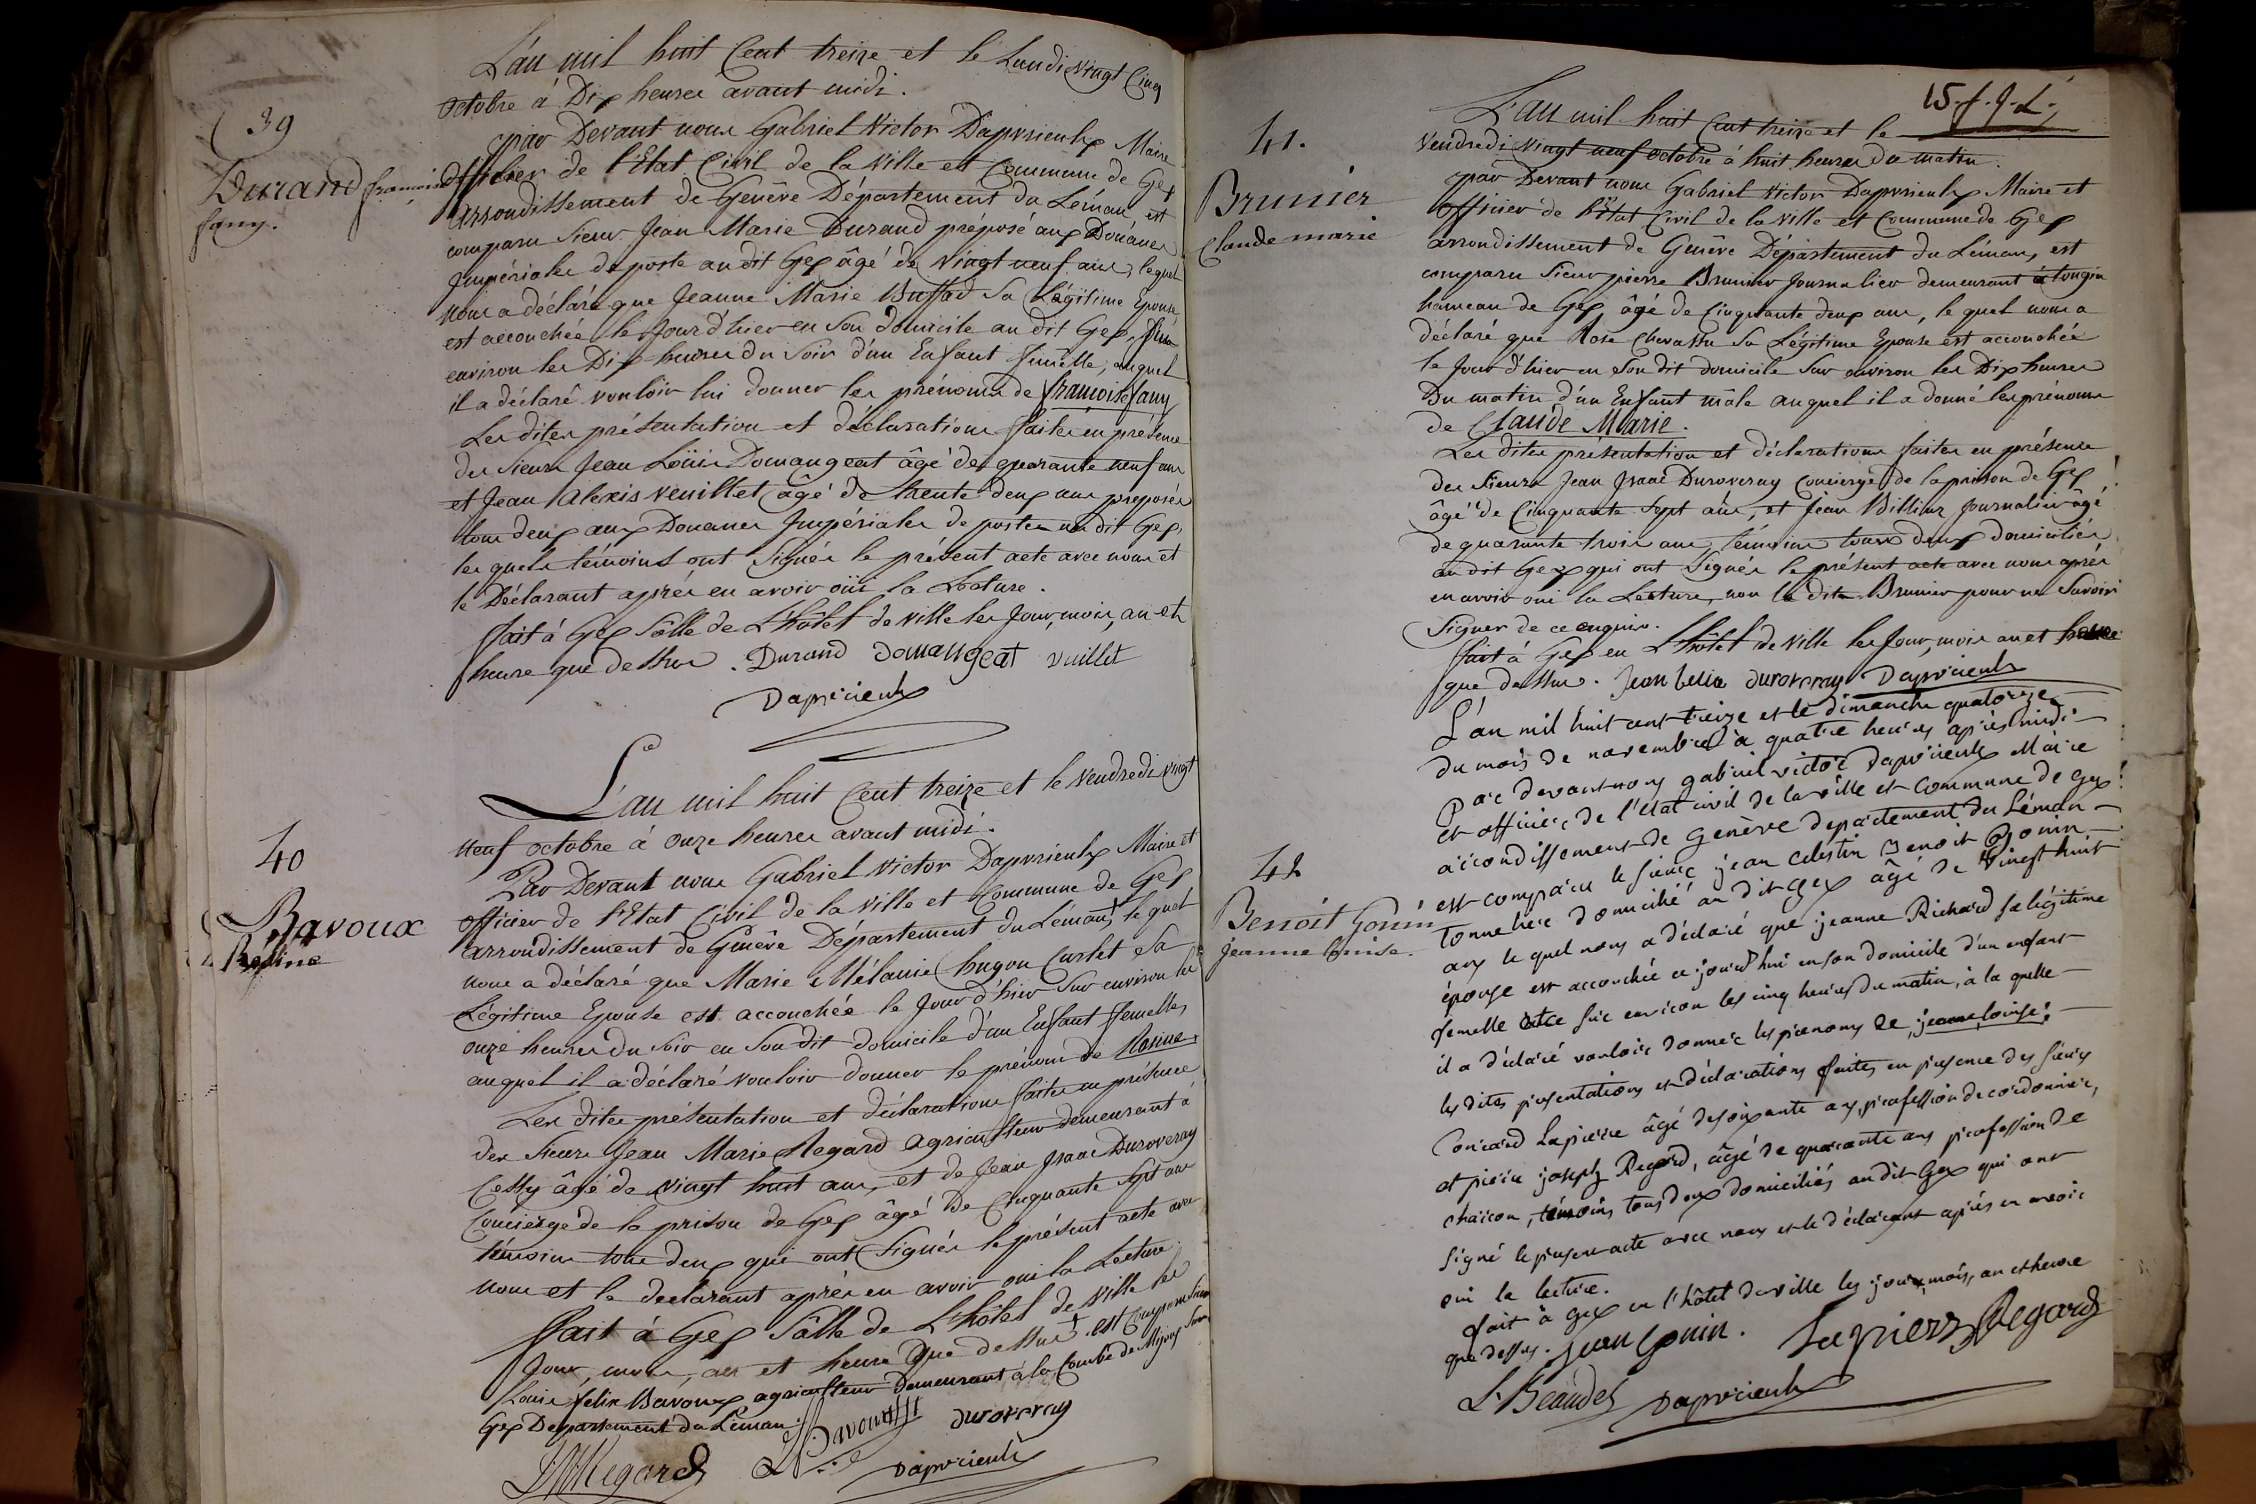 L'an mil huit Cent treize et le Lundi vingt Cinq
octobre à Dix heures avant midi.
39
par Devant nous Gabriel Victor Dapvrieulx Maire
Durand françoise
fany.
officier de l'Etat Civil de la ville et Commune de Gex
arrondissement de Genêve Département du Léman, est
comparu Sieur Jean Marie Durand préposé aux Douanes
Impériales de poste au dit Gex âgé de vingt neuf ans, lequel
nous a déclaré que Jeanne Marie Buffad Sa Légitime Epouse
est accouchée le Jour d'hier en Son domicile au dit Gex, Sur
environ les Dix heures du Soir d'un Enfant femelle, auquel
il a déclaré vouloir lui donner les prénoms de françoise fany
Les dites présentation et déclarations faites en présence
des Sieurs Jean Loüis Domangeat âgé de quarante neuf ans
et Jean Alexis Veuillet âgé de trente deux ans preposés
tous deux aux Douanes Impériales de postes au dit Gex,
les quels témoins ont Signés le présent acte avec nous et
le Déclarant après en avoir oüi la Lecture.
fait à Gex Sâlle de L'hôtel de ville les Jour, mois, an et
heure que dessus. Durand Domangeat Vuillet
Dapvrieulx
L'an mil huit Cent treize et le Vendredi vingt
neuf octobre à onze heures avant midi.
40
Bavoux
Rosine
Par Devant nous Gabriel Victor Dapvrieulx Maire et
officier de l'Etat Civil de la Ville et Commune de Gex
arrondissement de Genêve Département du Léman, le quel
nous a déclaré que Marie Mélanie hugon Curlet Sa
Légitime Epouse est accouchée le Jour d'hier Sur environ les
onze heures du Soir en Son dit domicile d'un Enfant femelle,
auquel il a déclaré vouloir donner le prénom de Rosine.
Les dites présentation et déclarations faites en présence
des Sieurs Jean Marie Regard agriculteur demeurant à
Cessy âgé de vingt huit ans, et de Jean Isaac Duroveray
Concierge de la prison de Gex âgé de Cinquante Sept ans
témoins tous deux qui ont Signés le présent acte avec
nous et le declarant après en avoir oui la Lecture.
fait à Gex Sâlle de L'hôtel de Ville les
Jour, mois, an et heure que dessus. est comparu Sieur
Louis felix Bavoux agriculteur demeurant à la Combe de Mijoux
Gex Département du Léman.
JM Regard Bavoux Duroveray
Dapvrieulx
15. f. J. L.
L'an mil huit Cent treize et le
Vendredi vingt neuf octobre à huit heures du matin.
41.
Brunier
Claude marie
par Devant nous Gabriel Victor Dapvrieulx Maire et
officier de l'Etat Civil de la ville et Commune de Gex
arrondissement de Genêve Département du Léman, est
comparu Sieur pierre Brunier Journalier demeurant à tougin
hameau de Gex âgé de Cinquante deux ans, le quel nous a
déclaré que Rose Chavassu Sa Légitime Epouse est accouchée
le Jour d'hier en Son dit domicile Sur environ les Dix heures
Du matin d'un Enfant mâle auquel il a donné les prénoms
de Claude Marie.
Les dites présentation et déclarations faites en présence
des Sieurs Jean Isaac Duroveray Concierge de la prison de Gex
âgé de Cinquante Sept ans, et Jean Billiux Journalier âgé
de quarante trois ans, témoins tous deux domiciliés
au dit Gex qui ont Signés le présent acte avec nous après
en avoir oui la Lecture, non le dit Brunier pour ne Savoir
Signer de ce enquis.
fait à Gex en L'hôtel de ville les Jour, mois an et heure
que dessus. Jean Duroveray Dapvrieulx
L'an mil huit cent treize et le dimanche quatorze
du mois de novembre à quatre heures après midi
Par devant nous gabriel victor Dapvrieulx Maire
et officier de l'état civil de la ville et commune de gex
arrondissement de Genève departement du Léman
42
Benoit Gonin
jeanne louise.
est comparu le sieur jean celestin Benoit Gonin
tonnelier domicilié au dit gex âgé de vingt huit
ans le quel nous a déclaré que jeanne Richard sa légitime
épouse est accouchée ce jourd'hui en son domicile d'un enfant
femelle sur environ les cinq heures du matin, à la quelle
il a déclaré vouloir donner les prenoms de jeanne louise.
les dites presentations et déclarations faites en presence des sieurs
Lapierre âgé de soixante ans, profession de cordonnier,
et pierre joseph Regard, âgé de quarante ans profession de
charron, témoins tous deux domiciliés au dit Gex qui ont
signé le present acte avec nous et le déclarant après en avoir
oui la lecture.
fait à gex en l'hôtel de ville les jour, mois, an et heure
que dessus. jean Gonin. Lapierre Regard
Dapvrieulx